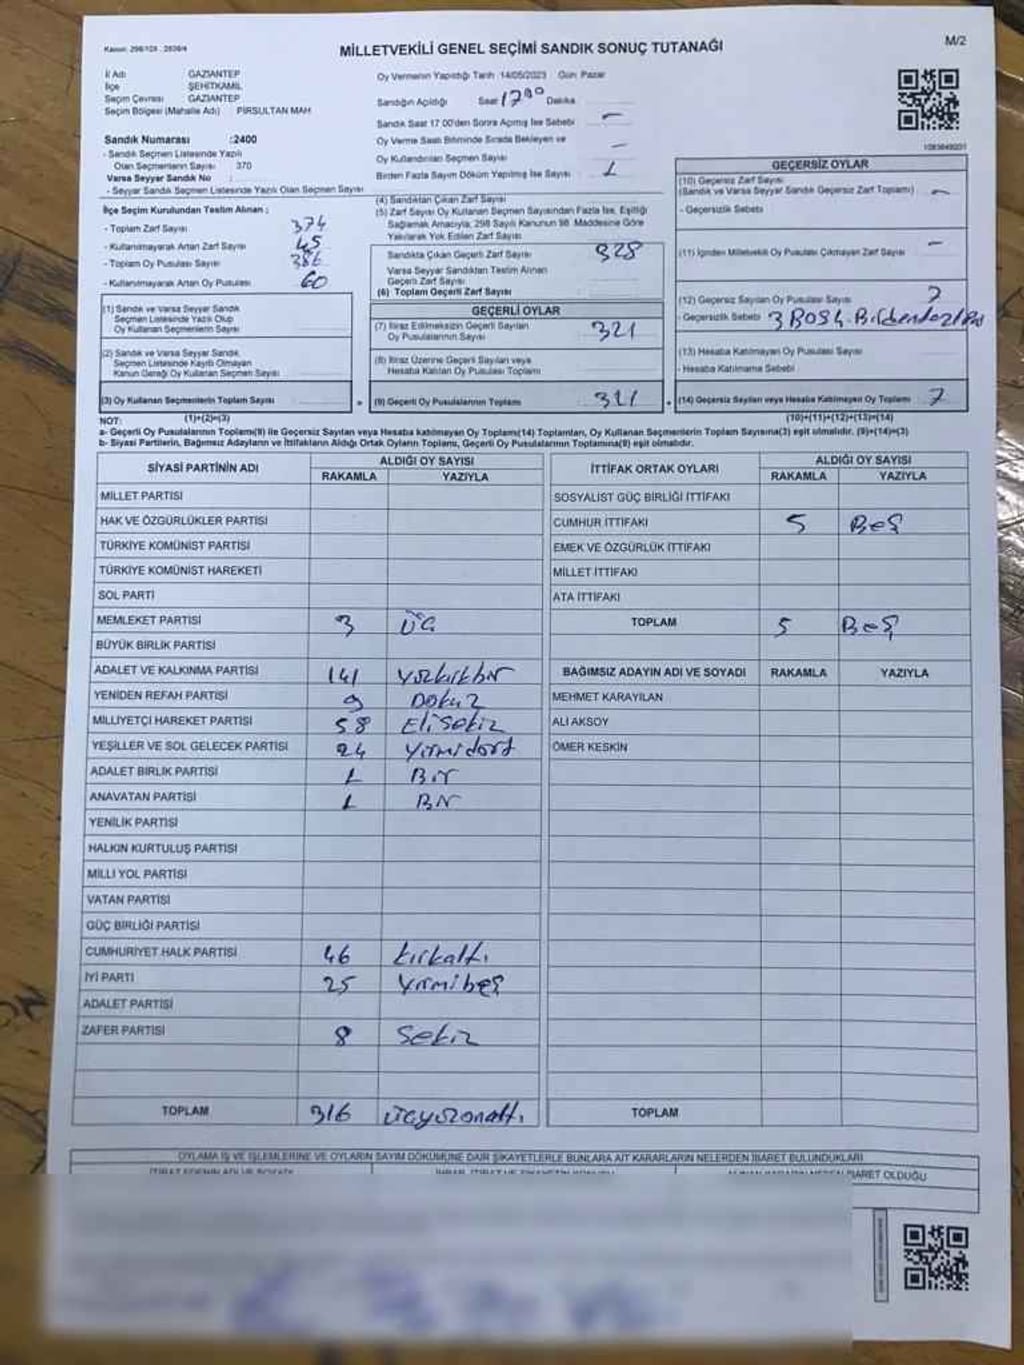 Kanun: 298/105 , 2839/4
MİLLETVEKİLİ GENEL SEÇİMİ SANDIK SONUÇ TUTANAĞI
M/2
İl Adı GAZİANTEP
İlçe ŞEHİTKAMİL
Seçim Çevresi GAZİANTEP
Seçim Bölgesi (Mahalle Adı) : PİRSULTAN MAH
Oy Vermenin Yapıldığı Tarih :14/05/2023 Gün: Pazar
Sandığın Açıldığı Saat 17 00 Dakika
Sandık Saat 17.00'den Sonra Açılmış İse Sebebi —
Oy Verme Saati Bitiminde Sırada Bekleyen ve
Oy Kullandırılan Seçmen Sayısı —
Birden Fazla Sayım Döküm Yapılmış İse Sayısı 1
Sandık Numarası :2400
- Sandık Seçmen Listesinde Yazılı
Olan Seçmenlerin Sayısı 370
Varsa Seyyar Sandık No :
- Seyyar Sandık Seçmen Listesinde Yazılı Olan Seçmen Sayısı
İlçe Seçim Kurulundan Teslim Alınan ;
- Toplam Zarf Sayısı 374
- Kullanılmayarak Artan Zarf Sayısı 45
- Toplam Oy Pusulası Sayısı 386
- Kullanılmayarak Artan Oy Pusulası 60
(1) Sandık ve Varsa Seyyar Sandık
Seçmen Listesinde Yazılı Olup
Oy Kullanan Seçmenlerin Sayısı
(2) Sandık ve Varsa Seyyar Sandık
Seçmen Listesinde Kayıtlı Olmayan
Kanun Gereği Oy Kullanan Seçmen Sayısı
(3) Oy Kullanan Seçmenlerin Toplam Sayısı
(1)+(2)=(3)
(4) Sandıktan Çıkan Zarf Sayısı
(5) Zarf Sayısı Oy Kullanan Seçmen Sayısından Fazla İse, Eşitliği
Sağlamak Amacıyla, 298 Sayılı Kanunun 98. Maddesine Göre
Yakılarak Yok Edilen Zarf Sayısı
Sandıkta Çıkan Geçerli Zarf Sayısı 328
Varsa Seyyar Sandıktan Teslim Alınan
Geçerli Zarf Sayısı
(6) Toplam Geçerli Zarf Sayısı
GEÇERLİ OYLAR
(7) İtiraz Edilmeksizin Geçerli Sayılan
Oy Pusulalarının Sayısı 321
(8) İtiraz Üzerine Geçerli Sayılan veya
Hesaba Katılan Oy Pusulası Toplamı
(9) Geçerli Oy Pusulalarının Toplamı 321
GEÇERSİZ OYLAR
(10) Geçersiz Zarf Sayısı
(Sandık ve Varsa Seyyar Sandık Geçersiz Zarf Toplamı) —
- Geçersizlik Sebebi
(11) İçinden Milletvekili Oy Pusulası Çıkmayan Zarf Sayısı —
(12) Geçersiz Sayılan Oy Pusulası Sayısı 7
- Geçersizlik Sebebi 3 BOŞ 4
(13) Hesaba Katılmayan Oy Pusulası Sayısı
- Hesaba Katılmama Sebebi
(14) Geçersiz Sayılan veya Hesaba Katılmayan Oy Toplamı 7
(10)+(11)+(12)+(13)=(14)
NOT:
a- Geçerli Oy Pusulalarının Toplamı(9) ile Geçersiz Sayılan veya Hesaba katılmayan Oy Toplamı(14) Toplamları, Oy Kullanan Seçmenlerin Toplam Sayısına(3) eşit olmalıdır. (9)+(14)=(3)
b- Siyasi Partilerin, Bağımsız Adayların ve İttifakların Aldığı Ortak Oyların Toplamı, Geçerli Oy Pusulalarının Toplamına(9) eşit olmalıdır.
SİYASİ PARTİNİN ADI
ALDIĞI OY SAYISI
RAKAMLA YAZIYLA
MİLLET PARTİSİ
HAK VE ÖZGÜRLÜKLER PARTİSİ
TÜRKİYE KOMÜNİST PARTİSİ
TÜRKİYE KOMÜNİST HAREKETİ
SOL PARTİ
MEMLEKET PARTİSİ 3 ÜÇ
BÜYÜK BİRLİK PARTİSİ
ADALET VE KALKINMA PARTİSİ 141 yüzkırkbir
YENİDEN REFAH PARTİSİ 9 Dokuz
MİLLİYETÇİ HAREKET PARTİSİ 58 Elisekiz
YEŞİLLER VE SOL GELECEK PARTİSİ 24 yirmidört
ADALET BİRLİK PARTİSİ 1 Bir
ANAVATAN PARTİSİ 1 Bir
YENİLİK PARTİSİ
HALKIN KURTULUŞ PARTİSİ
MİLLİ YOL PARTİSİ
VATAN PARTİSİ
GÜÇ BİRLİĞİ PARTİSİ
CUMHURİYET HALK PARTİSİ 46 kırkaltı
İYİ PARTİ 25 yirmibeş
ADALET PARTİSİ
ZAFER PARTİSİ 8 Sekiz
TOPLAM 316 üçyüzonaltı
İTTİFAK ORTAK OYLARI
ALDIĞI OY SAYISI
RAKAMLA YAZIYLA
SOSYALİST GÜÇ BİRLİĞİ İTTİFAKI
CUMHUR İTTİFAKI 5 Beş
EMEK VE ÖZGÜRLÜK İTTİFAKI
MİLLET İTTİFAKI
ATA İTTİFAKI
TOPLAM 5 Beş
BAĞIMSIZ ADAYIN ADI VE SOYADI RAKAMLA YAZIYLA
MEHMET KARAYILAN
ALİ AKSOY
ÖMER KESKİN
TOPLAM
OYLAMA İŞ VE İŞLEMLERİNE VE OYLARIN SAYIM DÖKÜMÜNE DAİR ŞİKAYETLERLE BUNLARA AİT KARARLARIN NELERDEN İBARET BULUNDUKLARI
İBARET OLDUĞU